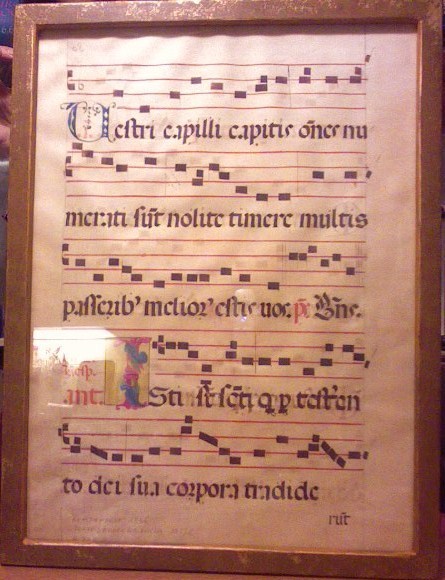 Vestri capilli capitis om̃es nu
merati sũt nolite timere multis
passerib' melior' estis uos. ps̃ Bñe.
vesp.
ant. ISti sũt sc̃ti q p test'en
to dei sua corpora tradide
rũt